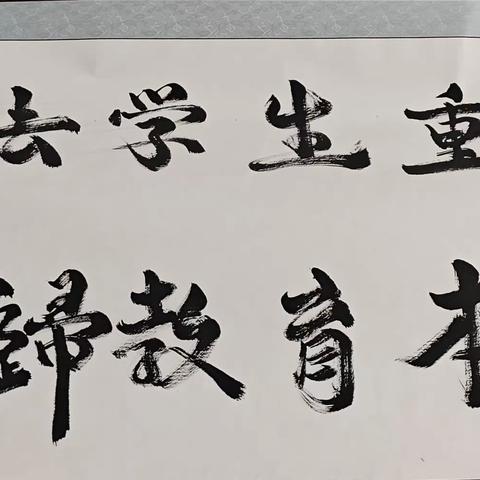 去学生重
歸教育本